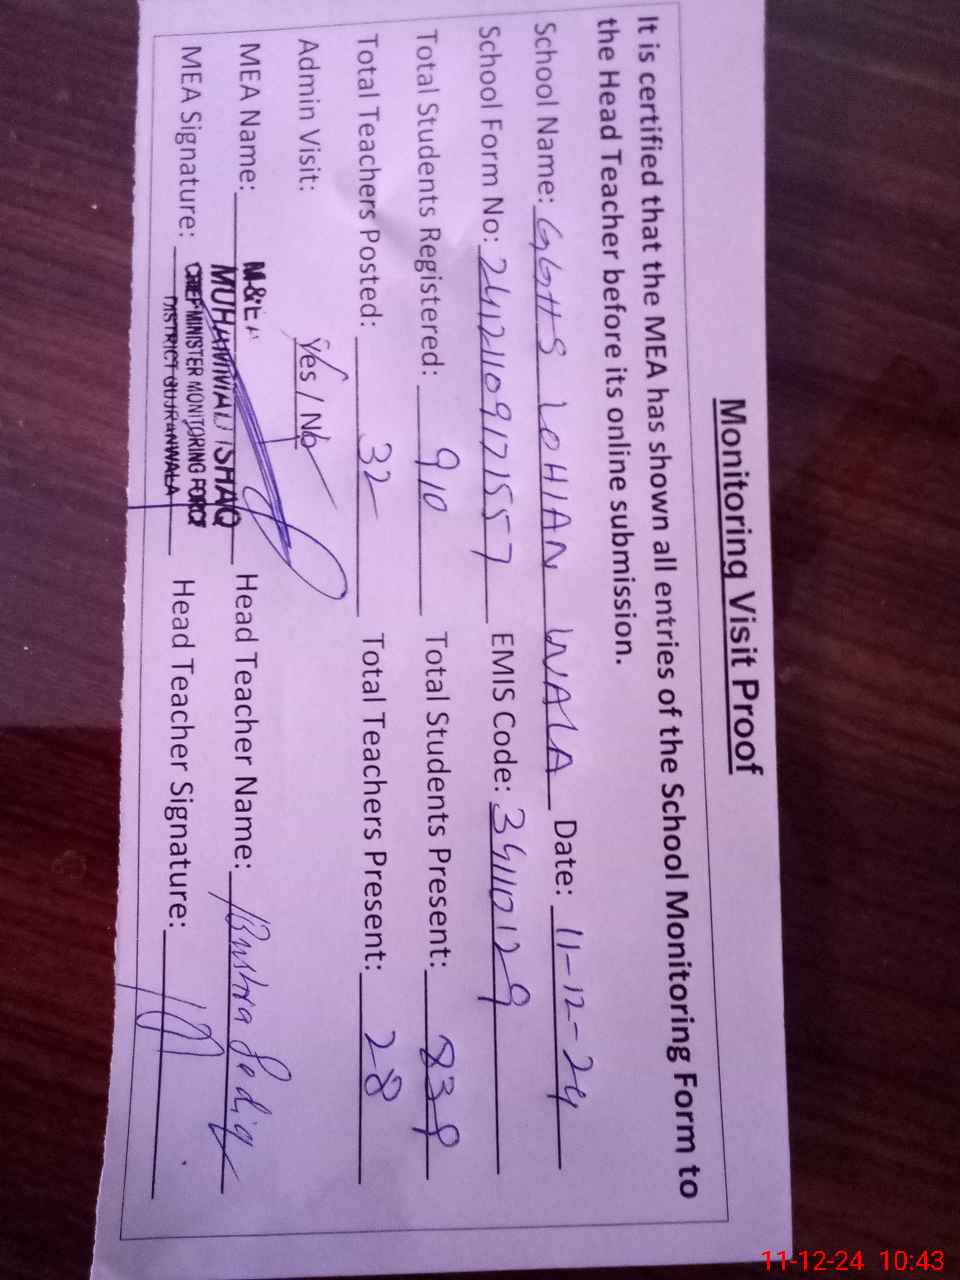 Monitoring Visit Proof
It is certified that the MEA has shown all entries of the School Monitoring Form to
the Head Teacher before its online submission.
School Name: GGHS LOHIAN WALA Date: 11-12-24
School Form No: 2412110917157 EMIS Code: 34110129
Total Students Registered: 910 Total Students Present: 839
Total Teachers Posted: 32 Total Teachers Present: 28
Admin Visit: Yes / No
M&EA
MEA Name: MUHAMMAD ISHAQ Head Teacher Name: Bushra Sadiq
CHIEF MINISTER MONITORING FORCE
MEA Signature: Head Teacher Signature:
DISTRICT GUJRANWALA
11-12-24 10:43